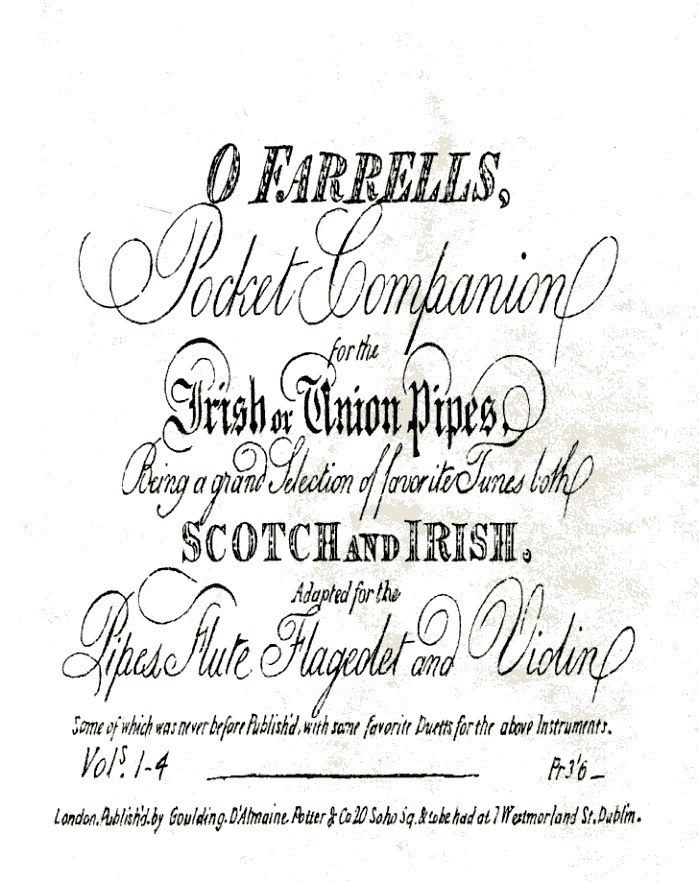 O FARRELLS,
Pocket Companion
for the
Irish or Union Pipes.
Being a grand Selection of favorite Tunes both
SCOTCH AND IRISH.
Adapted for the
Pipes, Flute Flageolet and Violin
Some of which was never before Publish'd, with some favorite Duetts for the above Instruments.
Vols. 1-4 Pr 3'6
London. Publish'd. by Goulding. D'Almaine. Potter & Co 20 Soho Sq. & to be had at 7 Westmorland St. Dublin.